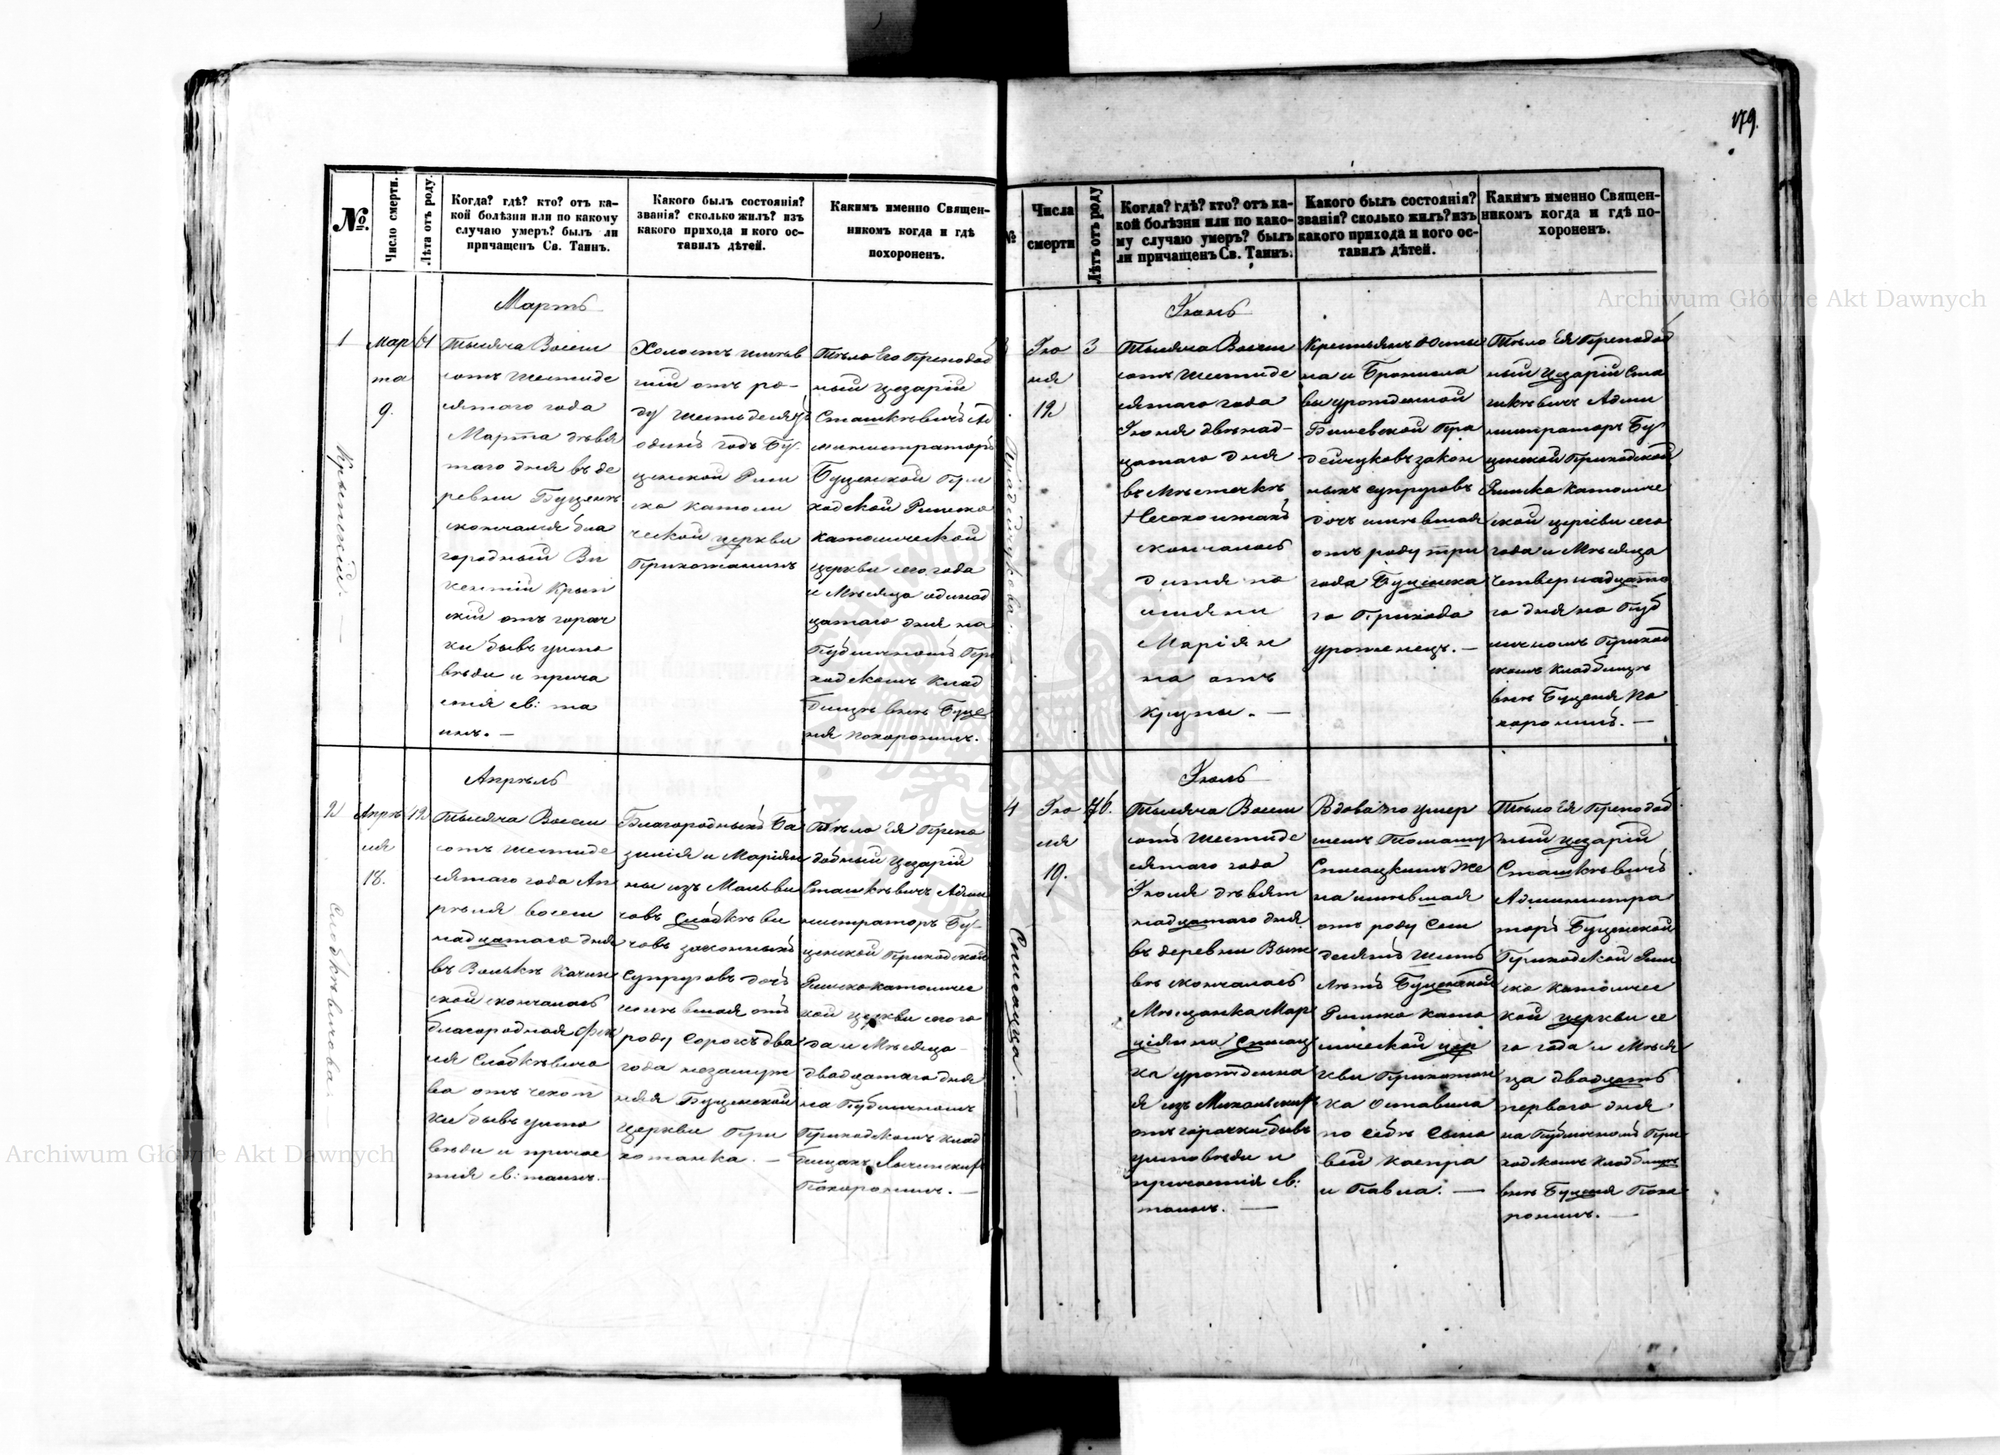 179.
Archiwum Główne Akt Dawnych
№.
Число смерти.
Лѣта отъ роду.
Когда? гдѣ? кто? отъ ка-
кой болѣзни или по какому
случаю умеръ? былъ ли
причащенъ Св. Таинъ.
Какого былъ состоянія?
званія? сколько жилъ? изъ
какого прихода и кого ос-
тавилъ дѣтей.
Какимъ именно Священ-
никомъ когда и гдѣ
похороненъ.
Мартъ
1
Мар
та
9.
61
Крыпскій. —
Тысяча Восем
сотъ шестиде
сятаго года
Марта девя
таго дня въ де
ревни Буценъ
скончался бла
городный Ви
кентій Крып
скій отъ горяч
ки бывъ упо
вѣди и прича
стія св: та
инъ. —
Холостъ имѣв
шій отъ ро-
ду шестьдесятъ
одинъ годъ Бу
ценской Рим
ско католи
ческой церкви
Прихожанинъ
Тѣло Его Преподоб
ный Цезарій
Сташкѣвичъ Ад
министраторъ
Буценской При
ходской Римско
католической
церкви сего года
и Мѣсяца одинад
цатаго дня на
Публичномъ При
ходскомъ клад
бищѣ внѣ Буце
ня похоронилъ.
Апрѣль
2
Апрѣ
ля
18.
42
Слобкѣвичова. —
Тысяча Восем
сотъ шестиде
сятаго года Ап
рѣля восем
надцатаго дня
въ Волькѣ Качин
ской скончалась
благородная Фек
ля Слобкѣвичо
ва отъ чехот
ки бывъ упо
вѣди и причас
тія св: таинъ.
Благородныхъ Ба
зилія и Маріян
ны изъ Мальви
човъ Слобкѣви
човъ законныхъ
Супруговъ дочь
имѣвшая отъ
роду сорокъ два
года незамуж
няя Буценской
церкви При
хожанка. —
Тѣло Ея Препо
добный Цезарій
Сташкѣвичъ Адми
нистраторъ Бу-
ценской Приходской
Римскокатоличес
кой церкви сего го
да и Мѣсяца
двадцатаго дня
на Публичномъ
Приходскомъ клад
бищахъ
Похоронилъ. —
№
Числа
смерти
Лѣтъ отъ роду
Когда? гдѣ? кто? отъ ка-
кой болѣзни или по како-
му случаю умеръ? былъ
ли причащенъ Св. Таинъ.
Какого былъ состоянія?
званія? сколько жилъ? изъ
какого прихода и кого ос-
тавилъ дѣтей.
Какимъ именно Священ-
никомъ когда и гдѣ по-
хороненъ.
Іюнь
3
Ію
ня
12
3
Тысяча Восем
сотъ шестиде
сятаго года
Іюня двѣнад-
цатаго дня
въ Мѣстечкѣ
скончалось
дитя по
имяни
Маріян
на отъ
крупы. —
Крестьянъ Юсты
на и Бронисла
вы урожденной
законн
ныхъ супруговъ
дочь имѣвшая
отъ роду три
года Буценска
го Прихода
уроженецъ. —
Тѣло Ея Преподоб
ный Цезарій Ста
шкѣвичъ Адми
нистраторъ Бу
ценской Приходской
Римско католиче
ской церкви сего
года и Мѣсяца
четвернадцато
го дня на Пуб
личномъ Приход
скомъ кладбищѣ
внѣ Буценя По
хоронилъ. —
Іюль
4
Ію
ля
19.
76.
Списацка. —
Тысяча Восем
сотъ шестиде
сятаго года
Іюля девят
надцатаго дня
въ деревни Выж
вѣ скончалась
Мѣщанка Мар
ціянна Списац
ка урожденна
я изъ Михальскихъ
отъ горячки бывъ
уповѣди и
причастія св:
таинъ. —
Вдова по умер
шемъ Томашу
Списацкимъ же
на имѣвшая
отъ роду Сем
десятъ шесть
лѣтъ Буценской
Римско като
лической цер
кви Прихожан
ка Оставила
по себѣ Сыно
вей Каспра
и Павла. —
Тѣло Ея Преподоб
ный Цезарій
Сташкѣвичъ
Администра
торъ Буценской
Приходской Рим
ско католичес
кой церкви се
го года и Мѣся
ца двадцать
перваго дня
на Публичномъ При-
ходскомъ кладбищѣ
внѣ Буценя Похо
ронилъ. —
Archiwum Główne Akt Dawnych